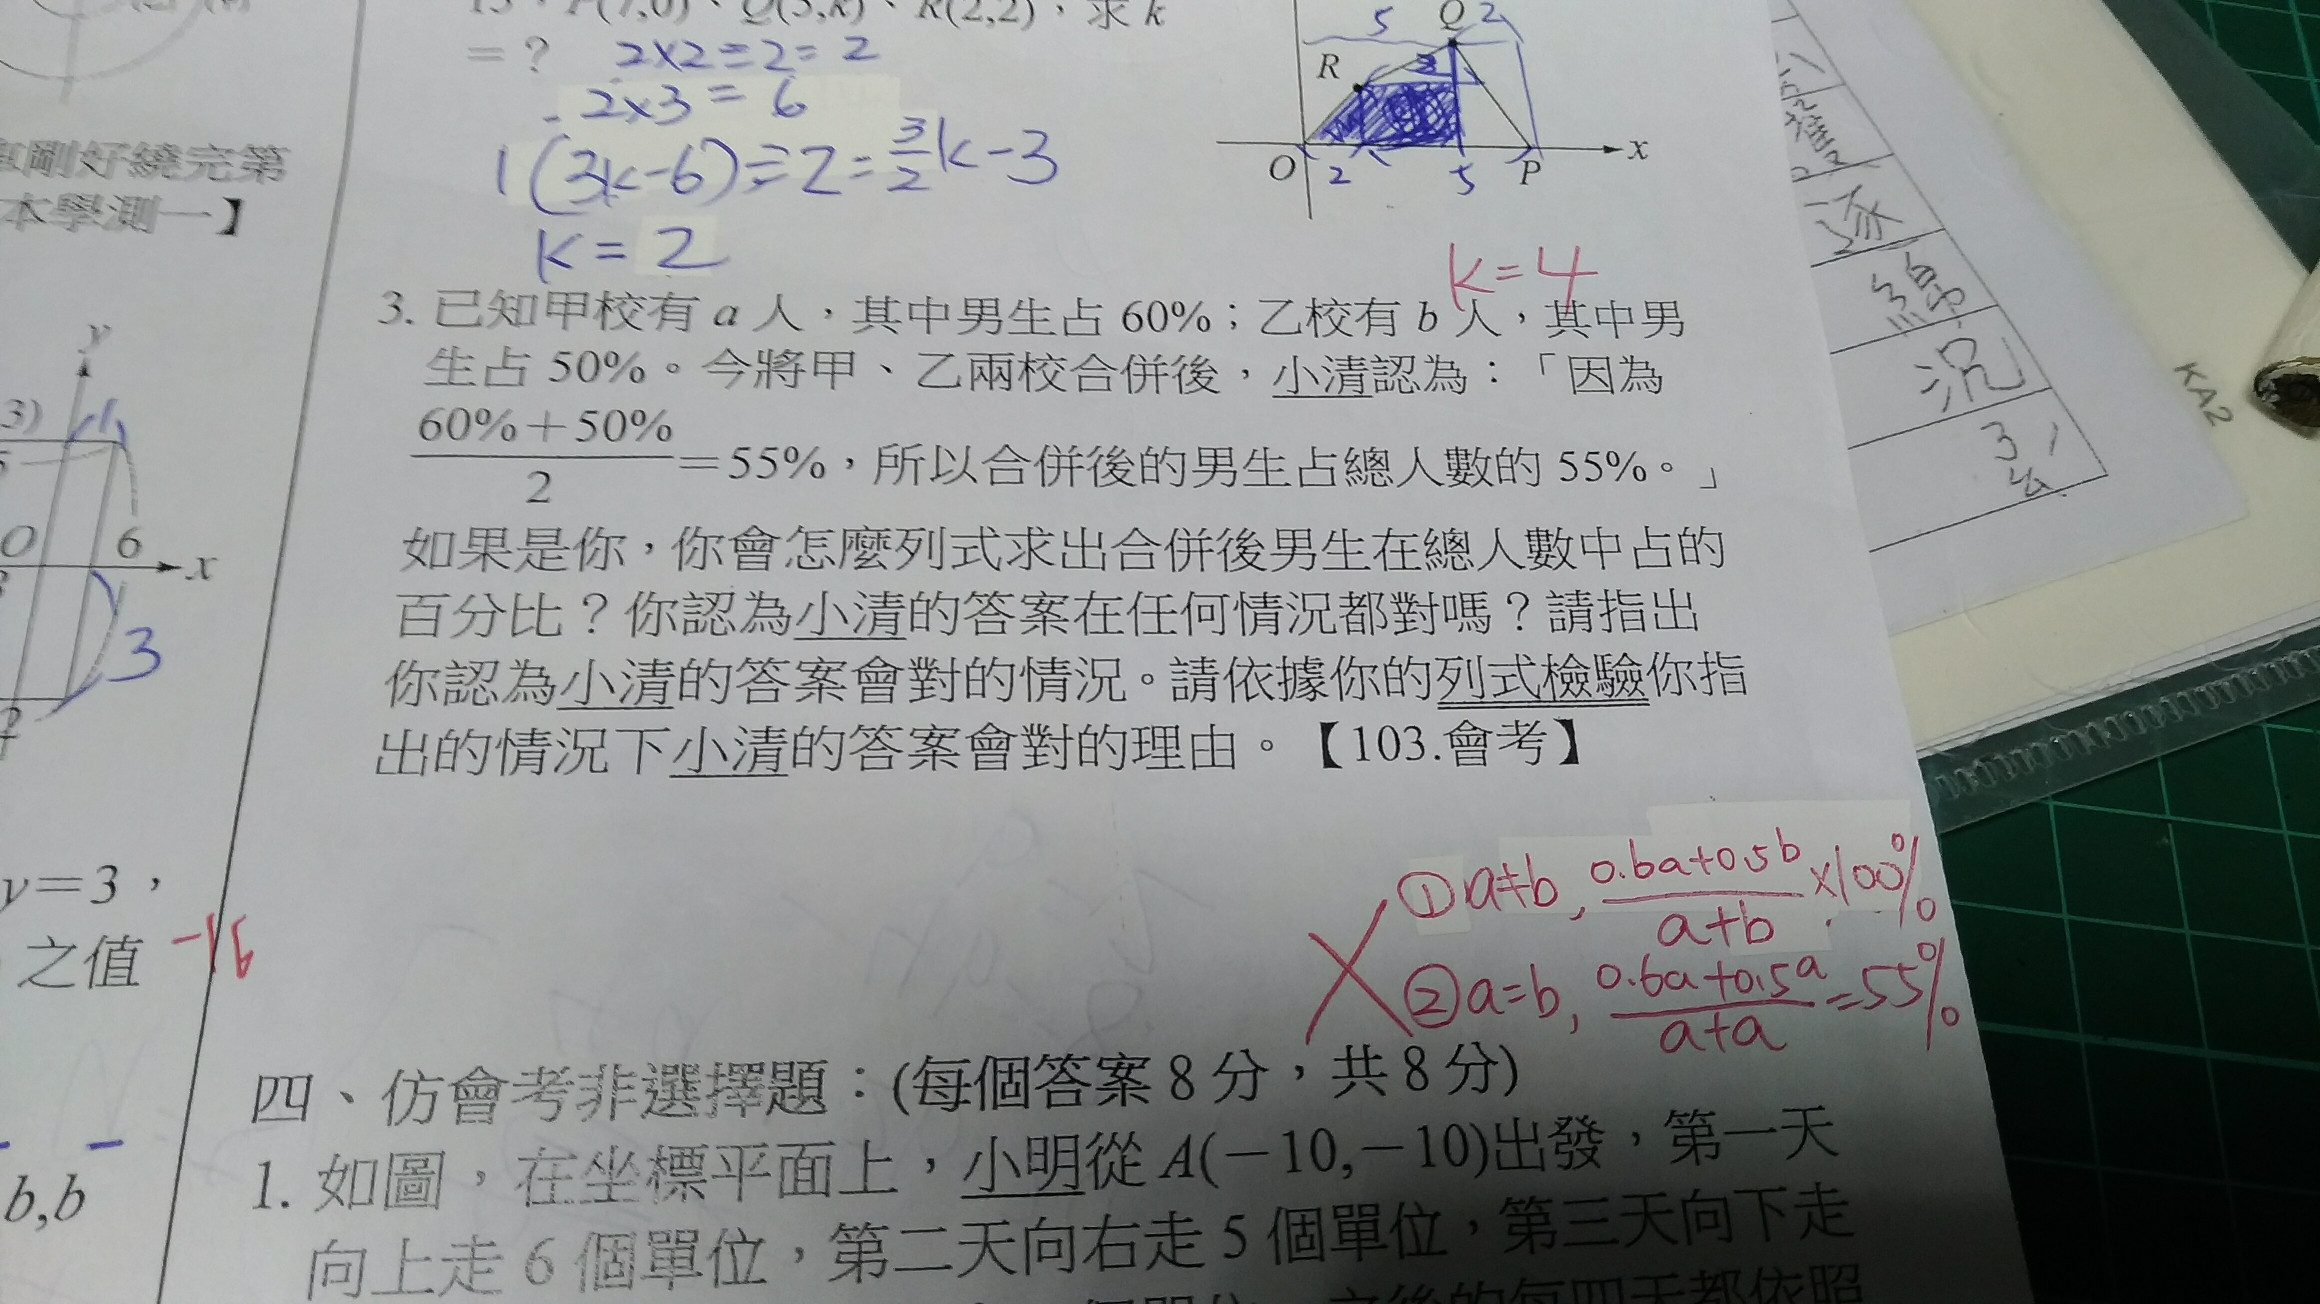 P(7,0)、Q(5,k)、R(2,2),求 k
=?
2×2÷2=2
2×3=6
(3k-6)÷2=3/2k-3
k=2
5
Q
2
R
3
O
2
5
P
x
k=4
3. 已知甲校有 a 人,其中男生占 60%;乙校有 b 人,其中男
生占 50%。今將甲、乙兩校合併後,小清認為:「因為
60%+50%
2
=55%,所以合併後的男生占總人數的 55%。」
如果是你,你會怎麼列式求出合併後男生在總人數中占的
百分比?你認為小清的答案在任何情況都對嗎?請指出
你認為小清的答案會對的情況。請依據你的列式檢驗你指
出的情況下小清的答案會對的理由。【103.會考】
①a≠b, 0.6a+0.5b
a+b
×100%
②a=b, 0.6a+0.5a
a+a
=55%
四、仿會考非選擇題:(每個答案 8 分,共 8 分)
1. 如圖,在坐標平面上,小明從 A(-10,-10)出發,第一天
向上走 6 個單位,第二天向右走 5 個單位,第三天向下走
剛好繞完第
本學測一】
y
3)
1
O
6
x
3
y=3,
之值
-16
b,b
況
KA2